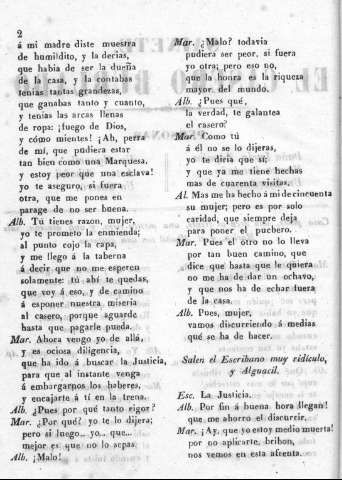 2
á mi madre diste muestra
de humildito, y la decias,
que habia de ser la dueña
de la casa, y la contabas
tenias tantas grandezas,
que ganabas tanto y cuanto,
y tenias las arcas llenas
de ropa: ¡fuego de Dios,
y cómo mientes! ¡Ah, perra
de mí, que pudiera estar
tan bien como una Marquesa,
y estoy peor que una esclava!
yo te aseguro, si fuera
otra, que me pones en
parage de no ser buena.
Alb. Tú tienes razon, muger,
yo te prometo la enmienda;
al punto cojo la capa,
y me llego á la taberna
á decir que no me esperen
solamente: tú ahí te quedas,
que voy á eso, y de camino
á esponer nuestra miseria
al casero, porque aguarde
hasta que pagarle pueda.
Mar. Ahora vengo yo de allá,
y es ociosa diligencia,
que ha ido á buscar la Justicia,
para que al instante venga
á embargarnos los haberes,
y encajarte á tí en la trena.
Alb. ¿Pues por qué tanto rigor?
Mar. ¿Por qué? yo te lo dijera;
pero si luego... yo... que...
mejor es que no lo sepas.
Alb. ¡Malo!
Mar. ¿Malo? todavia
pudiera ser peor, si fuera
yo otra; pero eso no,
que la honra es la riqueza
mayor del mundo.
Alb. ¿Pues qué,
la verdad, te galantea
el casero?
Mar. Como tú
á él no se lo dijeras,
yo te diria que sí;
y que ya me tiene hechas
mas de cuarenta visitas.
Al. Mas me ha hecho á mi de cincuenta
su muger; pero es por solo
caridad, que siempre deja
para poner el puchero.
Mar. Pues el otro no lo lleva
por tan buen camino, que
dice que hasta que le quiera
no me ha de dar un ochavo,
y que nos ha de echar fuera
de la casa.
Alb. Pues, muger,
vamos discurriendo á medias
qué se ha de hacer.
Salen el Escribano muy ridículo,
y Alguacil.
Esc. La Justicia.
Alb. Por fin á buena hora llegan!
que me ahorro el discurrir.
Mar. ¡Ay, que yo estoy medio muerta!
por no aplicarte, bribon,
nos vemos en esta afrenta.